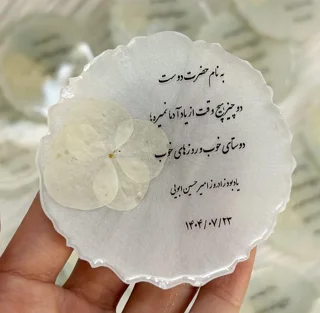 به نام حضرت دوست
دو چیز هیچ وقت از یاد آدما نمیره
دوستای خوب و روزهای خوب
یادبود زادروز امیرحسین ایوبی
۱۴۰۴/۰۷/۲۳